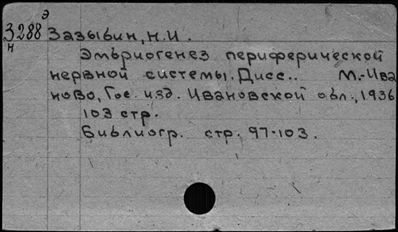 Э
3288
Н
Зазыбин, Н.И.
Эмбриогенез периферической
нервной системы. Дисс.. М.-Ива
ново, Гос. изд. Ивановской обл., 1936
103 стр.
Библиогр. стр. 97-103.